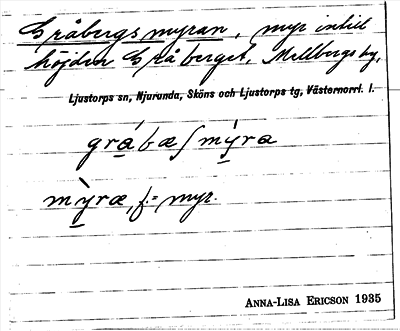 Gråbergsmyran, myr intill
höjden Gråberget, Mellbergs by,
Ljustorps sn, Njurunda, Sköns och Ljustorps tg, Västernorrl. l.
grábæʃmỳra
mỳræ, f. = myr.
ANNA-LISA ERICSON 1935